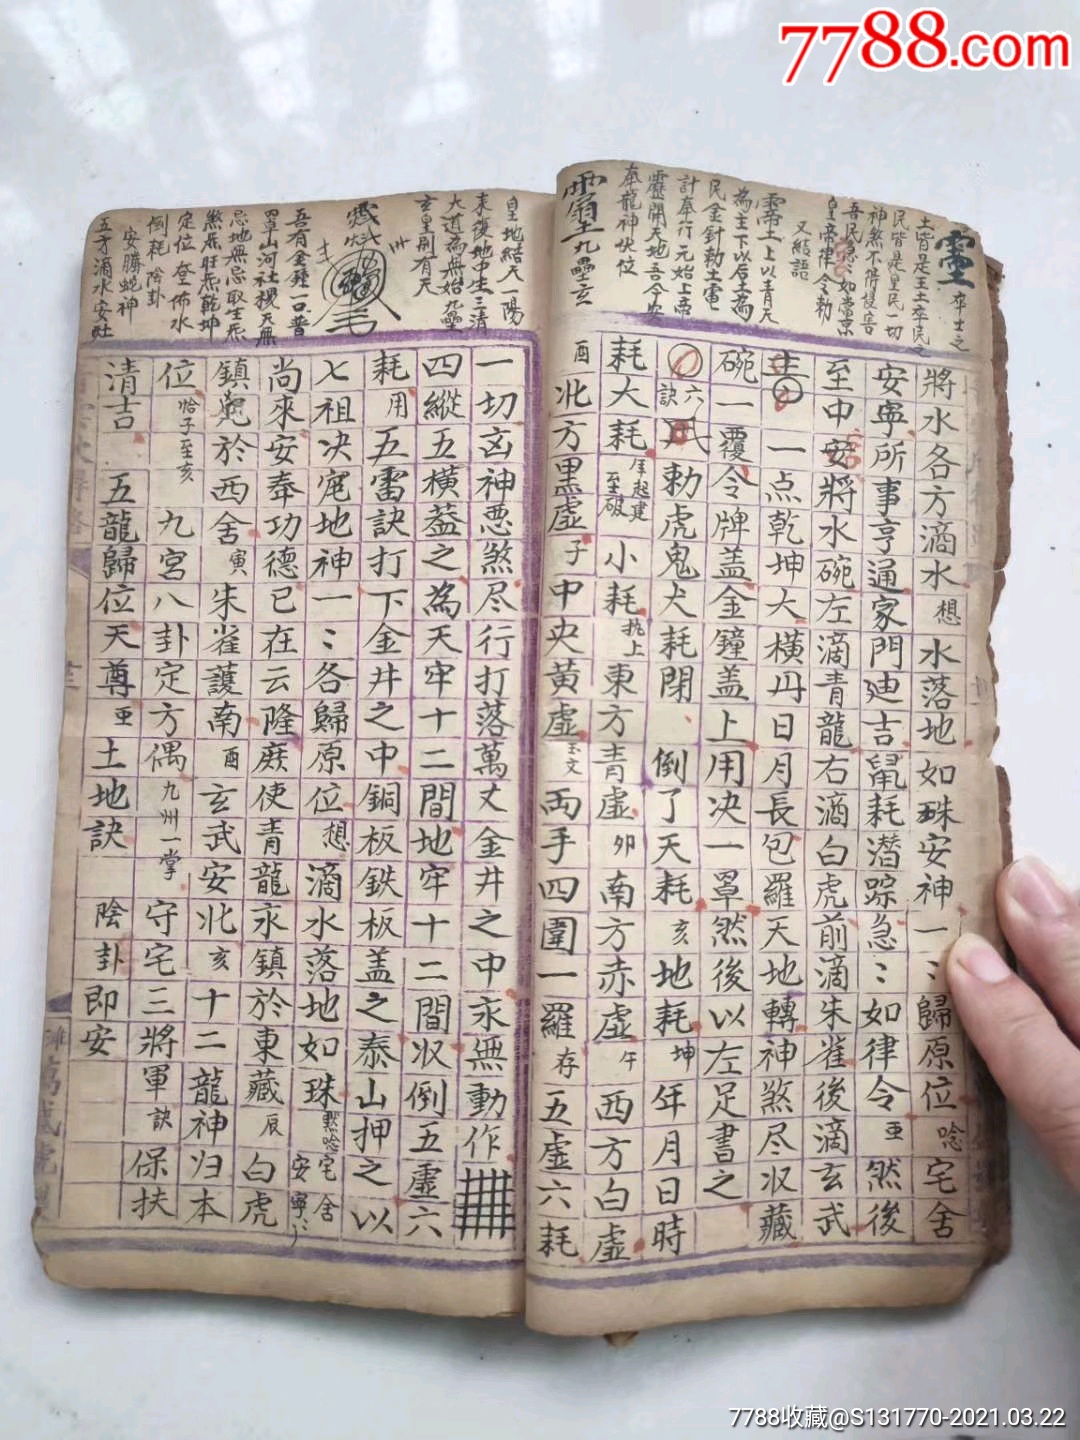 7788.com
將水各方滴水想水落地如珠安神一〻歸原位唸宅舍
安寧所事亨通家門廸吉鼠耗潛踪急〻如律令亜然後
至中安將水碗左滴青龍右滴白虎前滴朱雀後滴玄武
一点乾坤大橫丹日月長包羅天地轉神煞尽収藏
碗一覆令牌盖金鐘盖上用决一罩然後以左足書之
六訣勅虎鬼犬耗閉倒了天耗亥地耗坤年月日時
耗大耗年起建至破小耗执上東方青虛卯南方赤虛午西方白虛
酉北方黑虛子中央黃虛玉文両手四圍一羅存五虛六耗
一切凶神悪煞尽行打落萬丈金井之中永無動作
四縱五橫葢之為天牢十二間地牢十二間収倒五虛六
耗用五雷訣打下金井之中銅板鉄板盖之泰山押之以
七祖决宅地神一〻各歸原位想滴水落地如珠黙唸宅舍安寧
尚來安奉功德已在云隆庥使青龍永鎮於東藏辰白虎
鎮於西舍寅朱雀護南酉玄武安北亥十二龍神归本
位恰子至亥九宮八卦定方偶九州一掌守宅三將軍訣保扶
清吉五龍歸位天尊亜土地訣陰卦即安
土皆是王土卒民之
民皆是皇民一切
神煞不得侵害
吾民急〻如當京
皇帝律令勅
又結語
霊土上以青天
為主下以后土為
民金針勅土電
計奉行元始上帝
靂開天地吾今安
奉龍神伏位
九壘玄
皇地結天一陽
來後地中生三清
大道為無始九壘
玄皇刑有天
吾有金鐘一口普
罩山河社稷天無
忌地無忌取生炁
煞炁旺炁乾坤
定位奎佈水
倒耗陰卦
安騰蛇神
五方滴水安社
7788收藏@S131770-2021.03.22